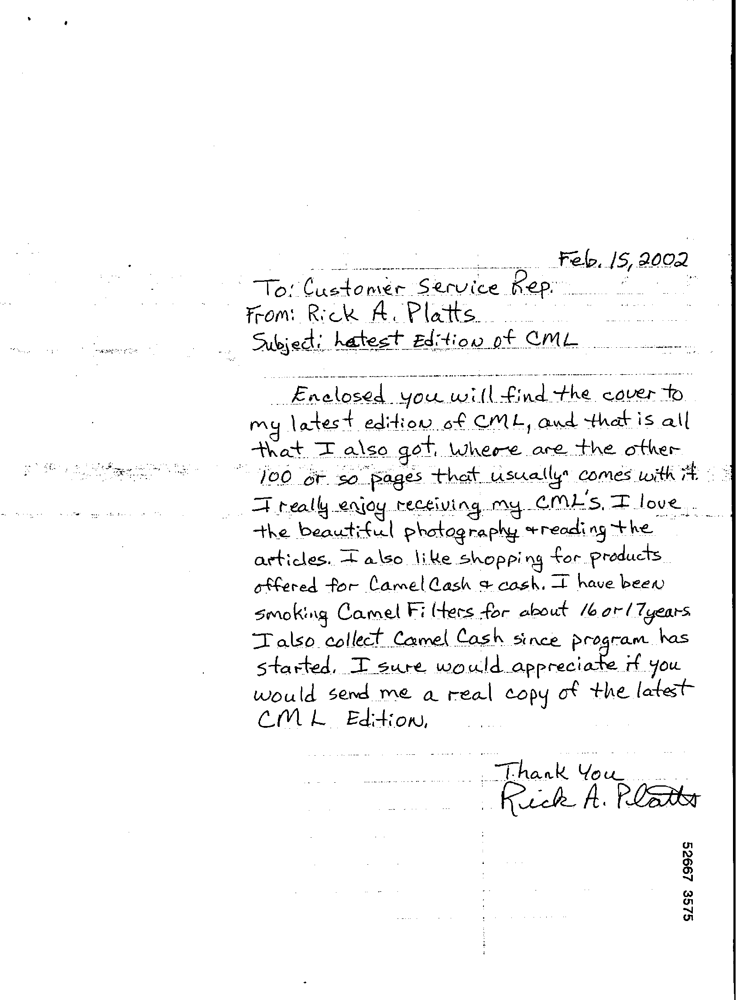 Feb. 15, 2002
To: Customer Service Rep.
From: Rick A. Platts
Subject: Latest Edition of CML
Enclosed you will find the cover to
my latest edition of CML, and that is all
that I also got. Where are the other
100 or so pages that usually comes with it.
I really enjoy receiving my CML's. I love
the beautiful photography + reading the
articles. I also like shopping for products
offered for Camel Cash & cash. I have been
smoking Camel Filters for about 16 or 17 years
I also collect Camel Cash since program has
started. I sure would appreciate if you
would send me a real copy of the latest
CML Edition.
Thank You
Rick A. Platts
52667 3575